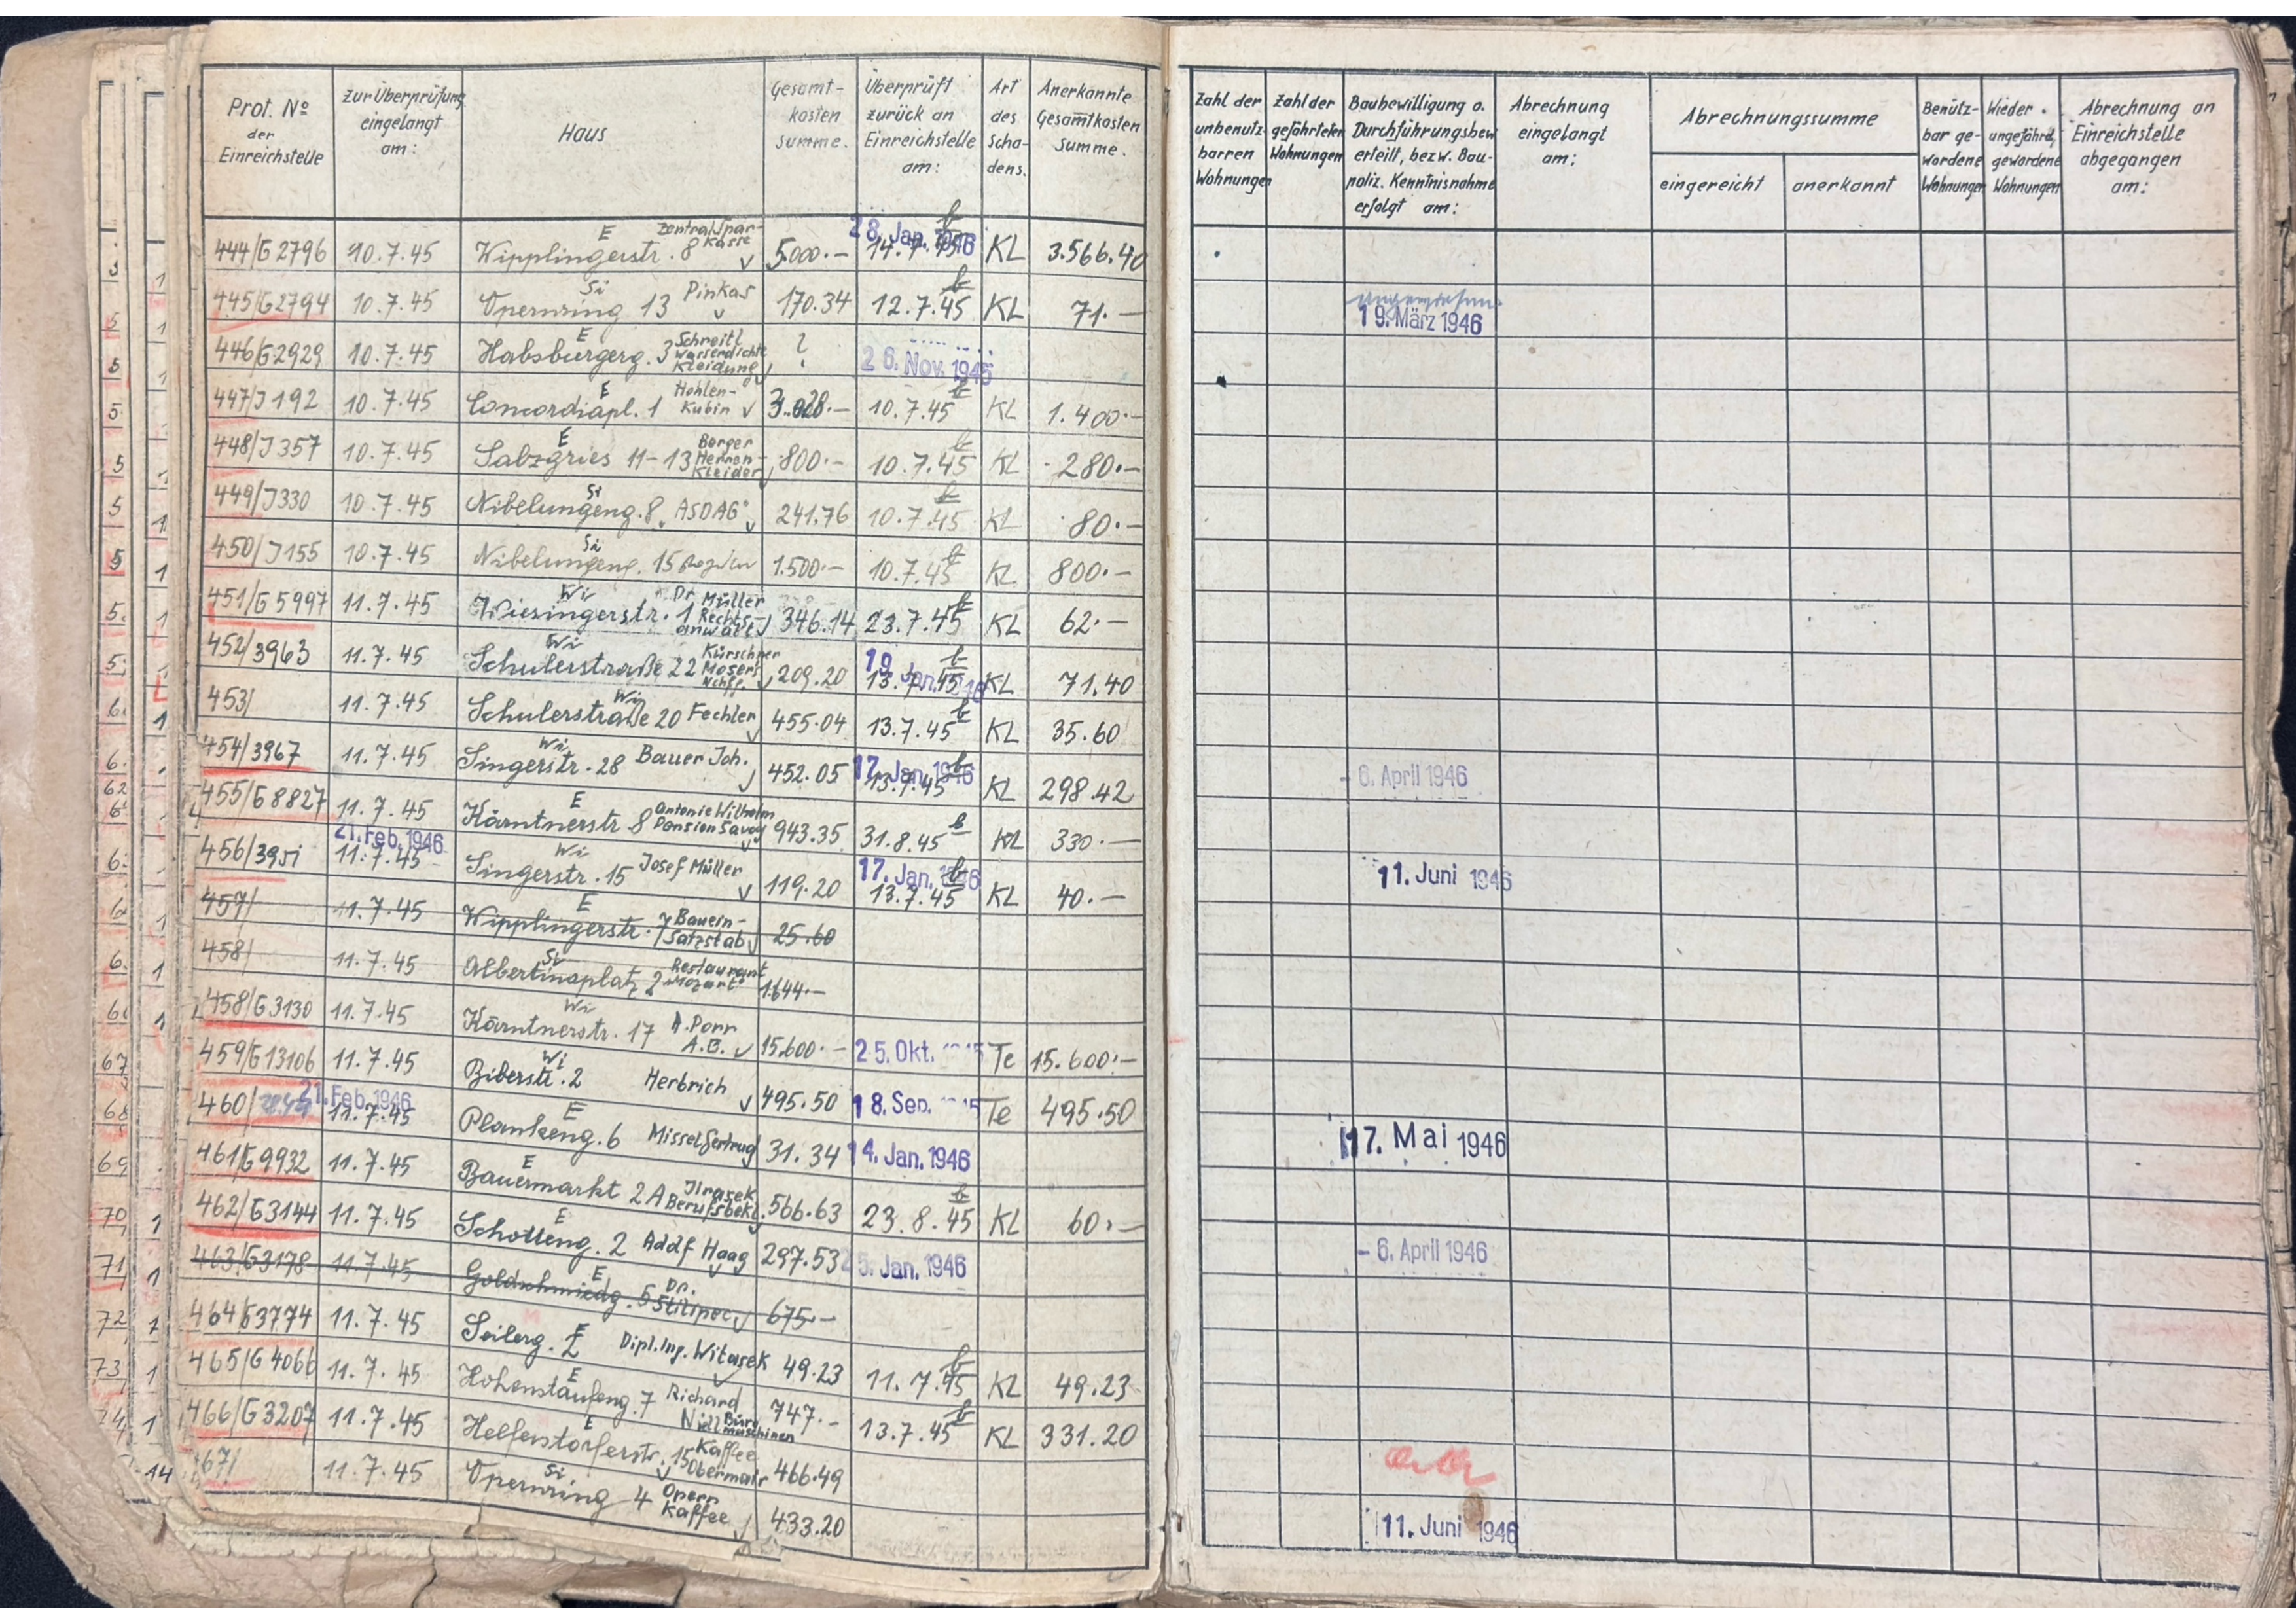 Prot. No der Einreichstelle | Zur Überprüfung eingelangt am: | Haus | Gesamtkosten summe. | Überprüft zurück an Einreichstelle am: | Art des Schadens. | Anerkannte Gesamtkosten Summe. | Zahl der unbenutzbarren Wohnungen | Zahl der gefährdeten Wohnungen | Baubewilligung o. Durchführungsbew. erteilt, bezw. Baupoliz. Kenntnisnahme erfolgt am: | Abrechnung eingelangt am: | Abrechnungssumme eingereicht | anerkannt | Benützbar gewordene Wohnungen | Wieder ungefährd. gewordene Wohnungen | Abrechnung an Einreichstelle abgegangen am:
444/G2796 10.7.45 Wipplingerstr. 8 E Zentralsparkasse 5.000.- 14.7.45 28. Jan. 1946 KL 3.566.40
445/G2794 10.7.45 Opernring 13 Si Pinkas 170.34 12.7.45 KL 71.- 19. März 1946
446/G2929 10.7.45 Habsburgerg. 3 E Schreitl Wasserdichte Kleidung ? 26. Nov. 1945
447/J192 10.7.45 Concordiapl. 1 E Hohlen-Kubin 3.028.- 10.7.45 KL 1.400.-
448/J357 10.7.45 Salzgries 11-13 E Berger Herren-Kleider 800.- 10.7.45 KL 280.-
449/J330 10.7.45 Nibelungeng. 8 Si ASDAG 241.76 10.7.45 KL 80.-
450/J155 10.7.45 Nibelungeng. 15 Si 1.500.- 10.7.45 KL 800.-
451/G5997 11.7.45 Wiesingerstr. 1 Wi Dr. Müller Rechtsanwalt 346.14 23.7.45 KL 62.-
452/3963 11.7.45 Schulerstraße 22 Wi Kürschner Mosers Nchfg. 209.20 13.7.45 19. Jan. KL 71.40
453/ 11.7.45 Schulerstraße 20 Wi Fechler 455.04 13.7.45 KL 35.60
454/3967 11.7.45 Singerstr. 28 Wi Bauer Joh. 452.05 13.7.45 17. Jan. 1946 KL 298.42 - 6. April 1946
455/G8827 11.7.45 Kärntnerstr 8 E Antonie Wilhelm Pension Savoy 943.35 31.8.45 KL 330.-
456/3951 11.7.45 21. Feb. 1946 Singerstr. 15 Wi Josef Müller 119.20 13.7.45 17. Jan. 1946 KL 40.- 11. Juni 1946
457/ 11.7.45 Wipplingerstr. 7 E Baueinsatzstab 25.60
458/ 11.7.45 Albertinaplatz 2 Si Restaurant "Mozart" 1.644.-
458/G3130 11.7.45 Kärntnerstr. 17 Wi A. Porr A.G. 15.600.- 25. Okt. Te 15.600.-
459/G13106 11.7.45 Biberstr. 2 Wi Herbrich 495.50 18. Sep. Te 495.50
460/ 11.7.45 21. Feb. 1946 Plankeng. 6 E Missel Gertrud 31.34 14. Jan. 1946 17. Mai 1946
461/G9932 11.7.45 Bauermarkt 2A E Jirasek Berufsbekl. 566.63 23.8.45 KL 60.-
462/G3144 11.7.45 Schotteng. 2 E Adolf Haag 297.53 25. Jan. 1946 - 6. April 1946
463/G3178 11.7.45 Goldschmiedg. 5 E Dr. 675.-
464/G3774 11.7.45 Seilerg. 2 E Dipl. Ing. Witasek 49.23 11.7.45 KL 49.23
465/G4066 11.7.45 Hohenstaufeng. 7 E Richard Büromaschinen 747.- 13.7.45 KL 331.20
466/G3207 11.7.45 Helfenstorferstr. 15 E Kaffee Obermair 466.49
467/ 11.7.45 Opernring 4 Si Opern Kaffee 433.20 11. Juni 1946